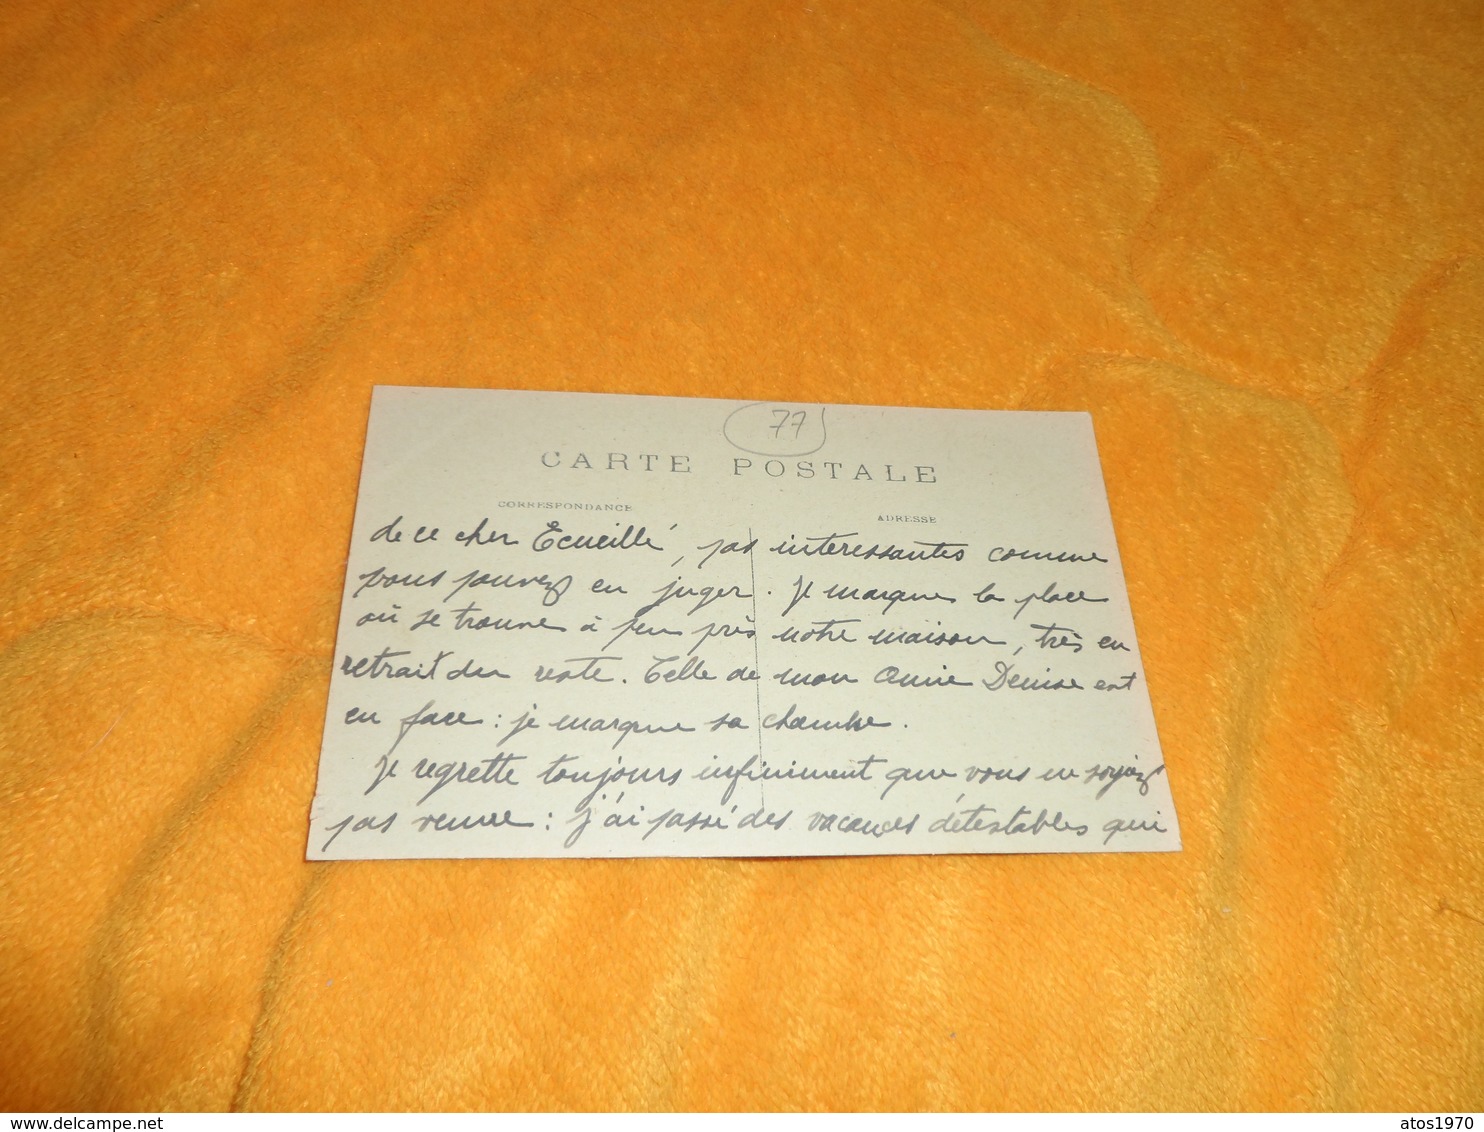 77
CARTE POSTALE
CORRESPONDANCE
ADRESSE
de ce cher Ecueillé, pas interessantes comme
vous pouvez en juger. Je marque la place
où se trouve à peu près notre maison, très en
retrait du reste. Celle de mon amie Denise est
en face : je marque sa chambre.
Je regrette toujours infiniment que vous ne soyiez
pas venue : j'ai passé des vacances détestables qui
www.delcampe.net
atos1970